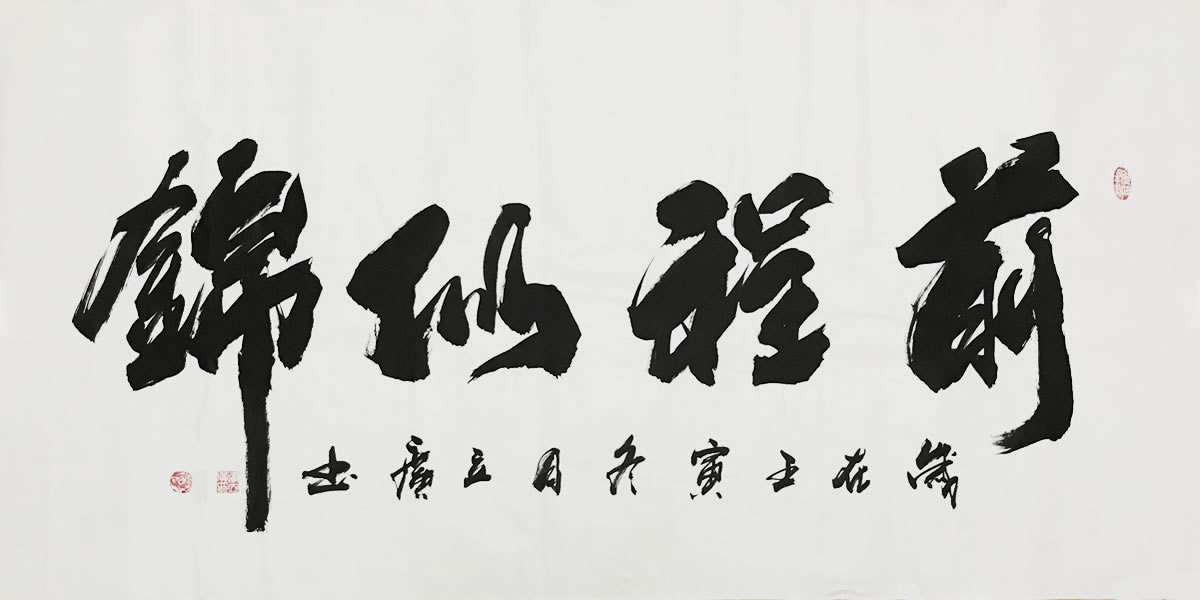 前程似錦
歲在壬寅冬月立廣書